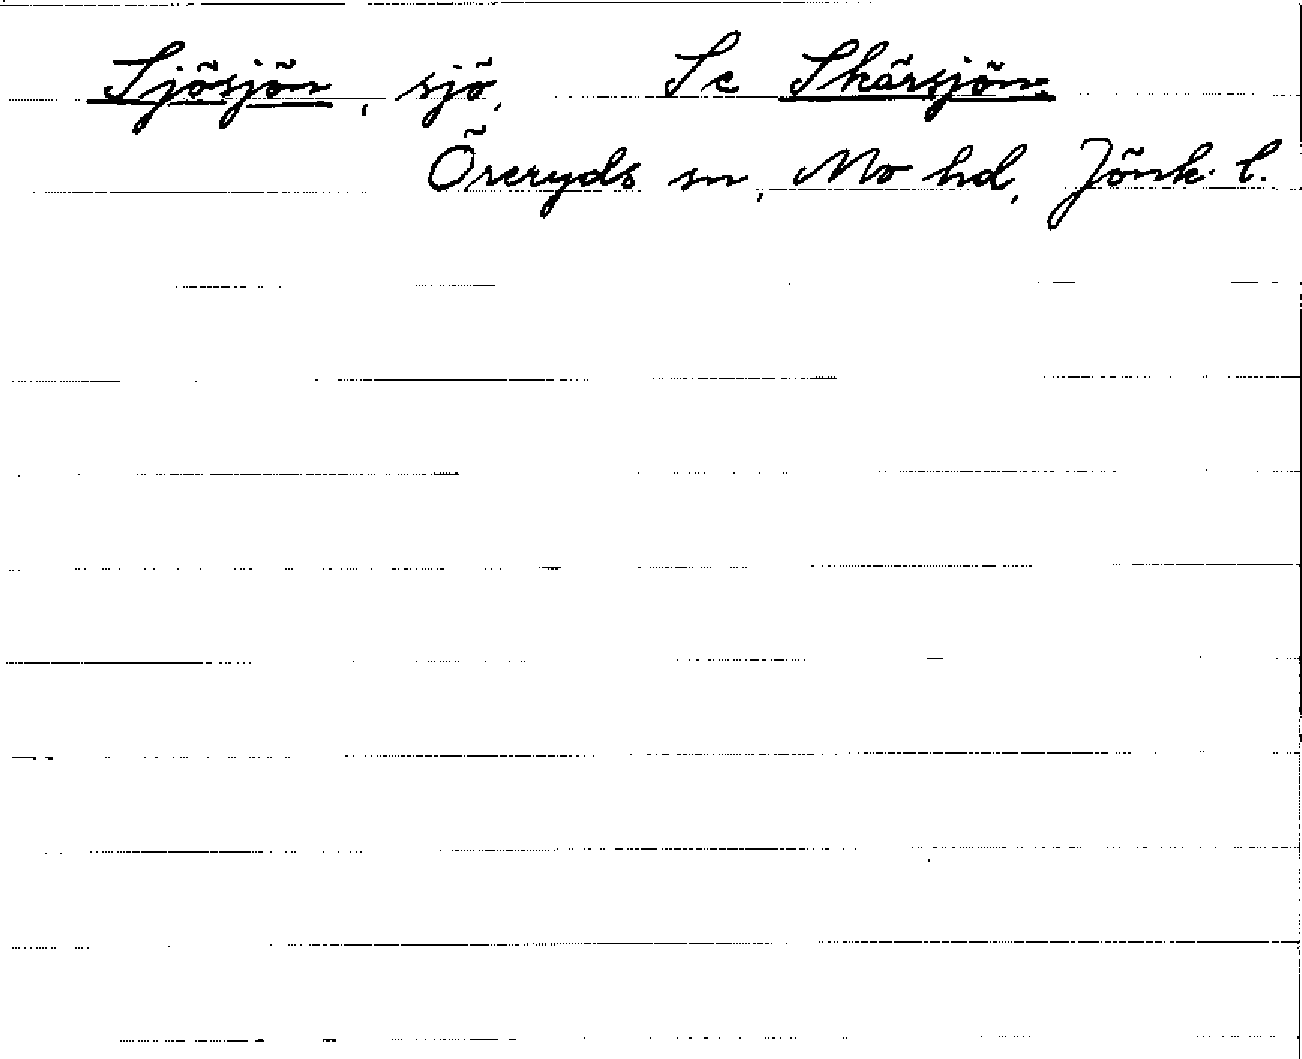 Sjösjön, sjö, Se Skärsjön.
Öreryds sn, Mo hd, Jönk. l.